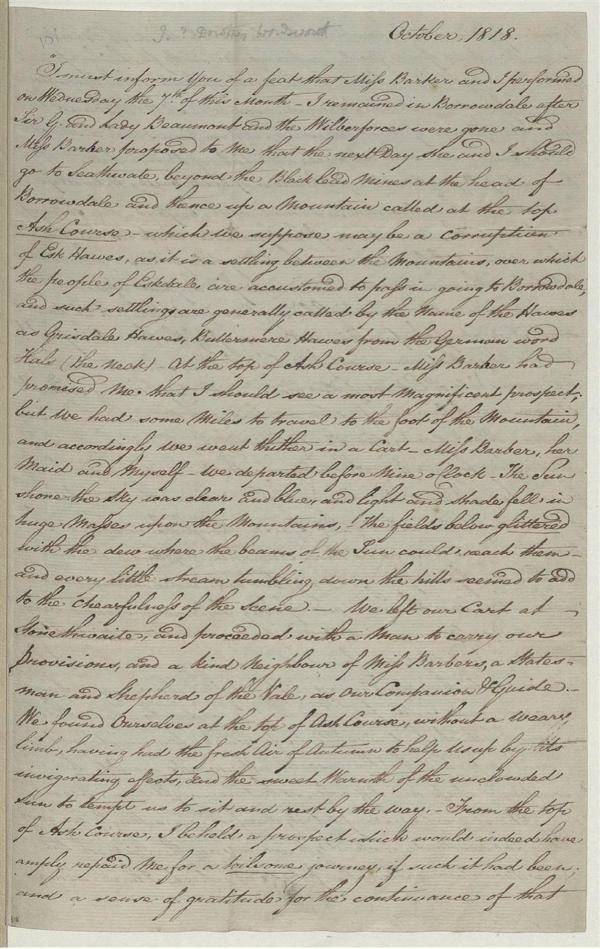 October, 1818.
"I must inform You of a feat that Miss Barker and I performed
on Wednesday the 7th of this Month – I remained in Borrowdale after
Sir G. and Lady Beaumont and the Wilberforces were gone and
Miss Barker proposed to Me that the next Day she and I should
go to Seathwaite, beyond the Black lead Mines at the head of
Borrowdale and thence up a Mountain called at the top
Ash Course – which we suppose may be a corruption
of Esk Hawes, as it is a settling between the Mountains, over which
the people of Eskdale are accustomed to pass in going to Borrowdale,
and such settlings are generally called by the Name of the Hawes
as Grisdale Hawes, Buttermere Hawes from the German word
Hals (the neck) – At the top of Ash Course – Miss Barker had
promised Me that I should see a most Magnificent prospect;
but We had some Miles to travel to the foot of the Mountain,
and accordingly we went thither in a Cart – Miss Barker, her
Maid and Myself – we departed before Nine o'Clock – The Sun
shone – the sky was clear and blue, and light and shade fell in
huge Masses upon the Mountains, – The fields below glittered
with the dew where the beams of the Sun could reach them –
and every little stream tumbling down the hills seemed to add
to the chearfulness of the Scene – We left our Cart at
Stonethwaite, and proceeded with a Man to carry our
Provisions, and a kind Neighbour of Miss Barkers, a States=
man and Shepherd of the Vale, as our Companion & Guide. –
We found Ourselves at the top of Ash Course, without a weary
limb, having had the fresh Air of Autumn to help us up by its
invigorating effects, and the sweet Warmth of the unclouded
sun to tempt us to sit and rest by the way. – From the top
of Ash Course, I beheld a prospect which would indeed have
amply repaid Me for a toilsome journey, if such it had been;
and a sense of gratitude for the continuance of that